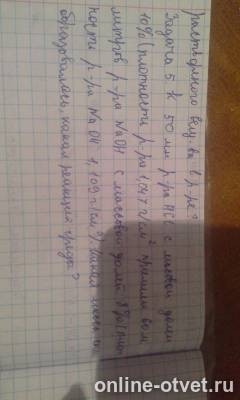 растворённого вещ-ва в р-ре?
Задача 5 К 50 мл р-ра HCl с массовой долей
10% (плотность р-ра 1,047 г/см³ прилили 60 мл
литров р-ра NaOH с массовой долей 8% (плот-
ности р-ра NaOH 1,109 г/см³). Какая масса
образовалась, какая реакция среды?
online-otvet.ru